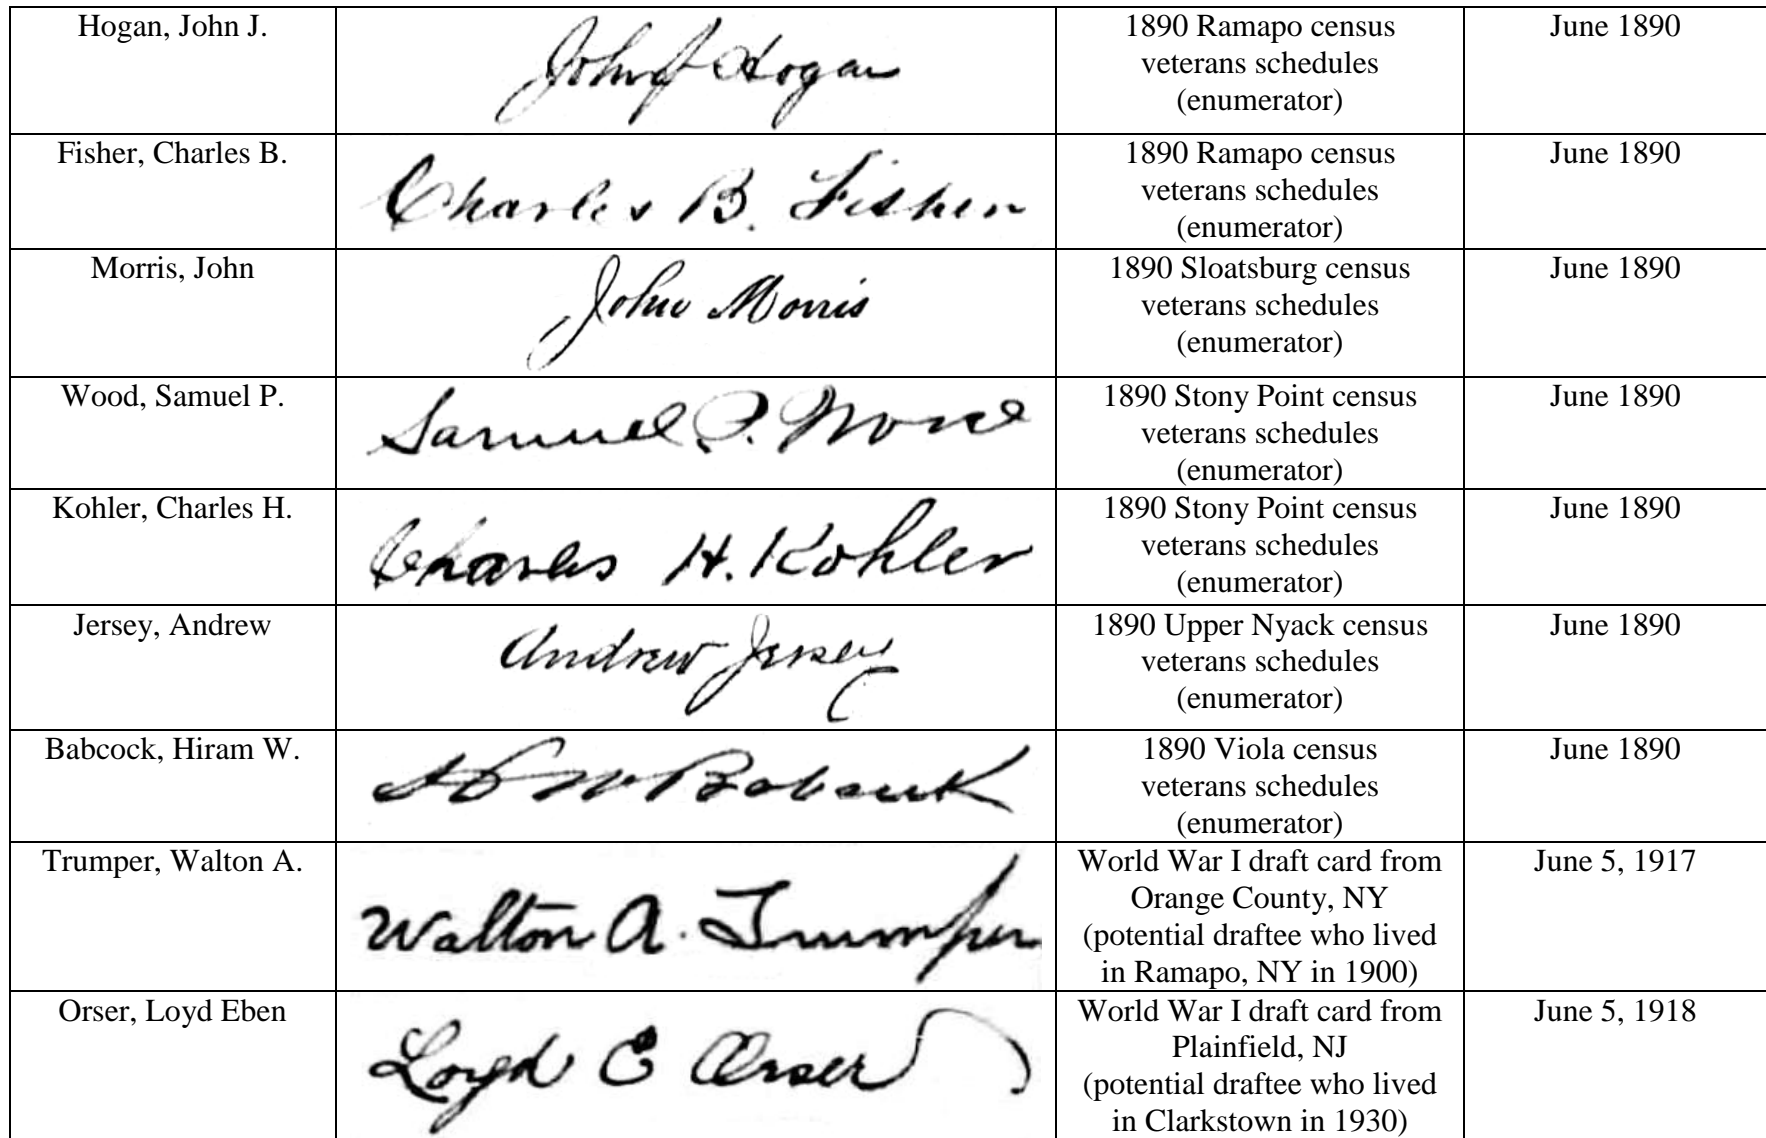 Hogan, John J.
John J Hogan
1890 Ramapo census
veterans schedules
(enumerator)
June 1890
Fisher, Charles B.
Charles B. Fisher
1890 Ramapo census
veterans schedules
(enumerator)
June 1890
Morris, John
John Morris
1890 Sloatsburg census
veterans schedules
(enumerator)
June 1890
Wood, Samuel P.
Samuel P. Wood
1890 Stony Point census
veterans schedules
(enumerator)
June 1890
Kohler, Charles H.
Charles H. Kohler
1890 Stony Point census
veterans schedules
(enumerator)
June 1890
Jersey, Andrew
Andrew Jersey
1890 Upper Nyack census
veterans schedules
(enumerator)
June 1890
Babcock, Hiram W.
H W Babcock
1890 Viola census
veterans schedules
(enumerator)
June 1890
Trumper, Walton A.
Walton A. Trumper
World War I draft card from
Orange County, NY
(potential draftee who lived
in Ramapo, NY in 1900)
June 5, 1917
Orser, Loyd Eben
Loyd E Orser
World War I draft card from
Plainfield, NJ
(potential draftee who lived
in Clarkstown in 1930)
June 5, 1918